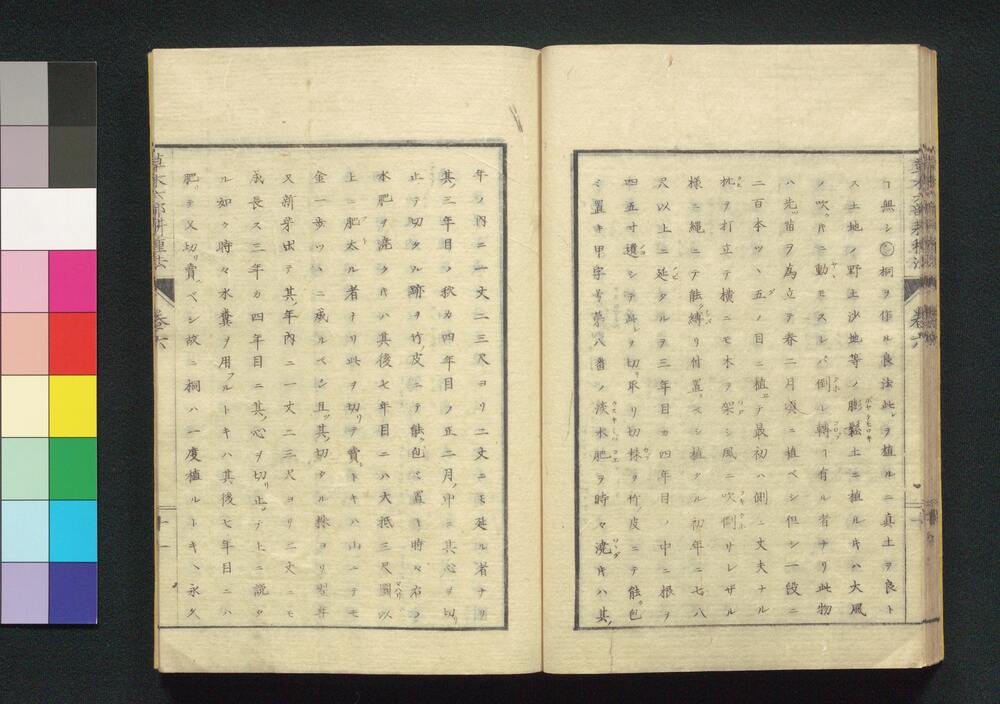 ヿ無シ○桐ヲ作ル良法此レヲ植ルニ真土ヲ良ト
ス土地ノ野土沙地等ノ膨鬆土ニ植ルキハ大風
ノ吹クバニ動モスレバ倒レ轉ヿ有ル者ナリ此物
ハ先ツ苗ヲ為立テ春二月頃ニ植ベシ但シ一段ニ
二百本ツヽ五ノ目ニ植ニテ最初ハ側ニ丈夫ナル
杭ヲ打立テ横ニモ木ヲ架シ風ニ吹倒サレザル
様ニ縄ニテ能縛リ付置ベシ植タル初年ニ七八
尺以上ニ延タルヲ三年目カ四年目ノ中ニ根ヲ
四五寸遺シテ此レヲ切リ取リ切株ヲ竹ノ皮ニテ能ク包
ミ置キ甲字号第八番ノ淡水肥ヲ時々澆キハ其ノ
年ノ内ニ一丈二三尺ヨリ二丈ニモ延ル者ナリ
其ノ三年目ノ秋カ四年目ノ正二月ノ中ニ其心ヲ切リ
止テ切タル跡ヲ竹ノ皮ニテ能ク包ミ置キ時々右ノ
水肥ヲ澆クキハ其後七年目ニハ大抵三尺圍以
上ニ肥太ル者ナリ此ヲ切リテ賣トキハ山ニテモ
金一歩ツヽニ成ルベシ且ツ其ノ切タル株ヨリ翌年
又新芽出テ其ノ年内ニ一丈二三尺ヨリ二丈ニモ
成長ス三年カ四年目ニ其ノ心ヲ切リ止テ上ニ説タ
ル如ク時々水糞ヲ用フルトキハ其後七年目ニハ
肥リテ又切リ賣ベシ故ニ桐ハ一度植ルトキハ永久
草木六部耕種法
巻六
十一